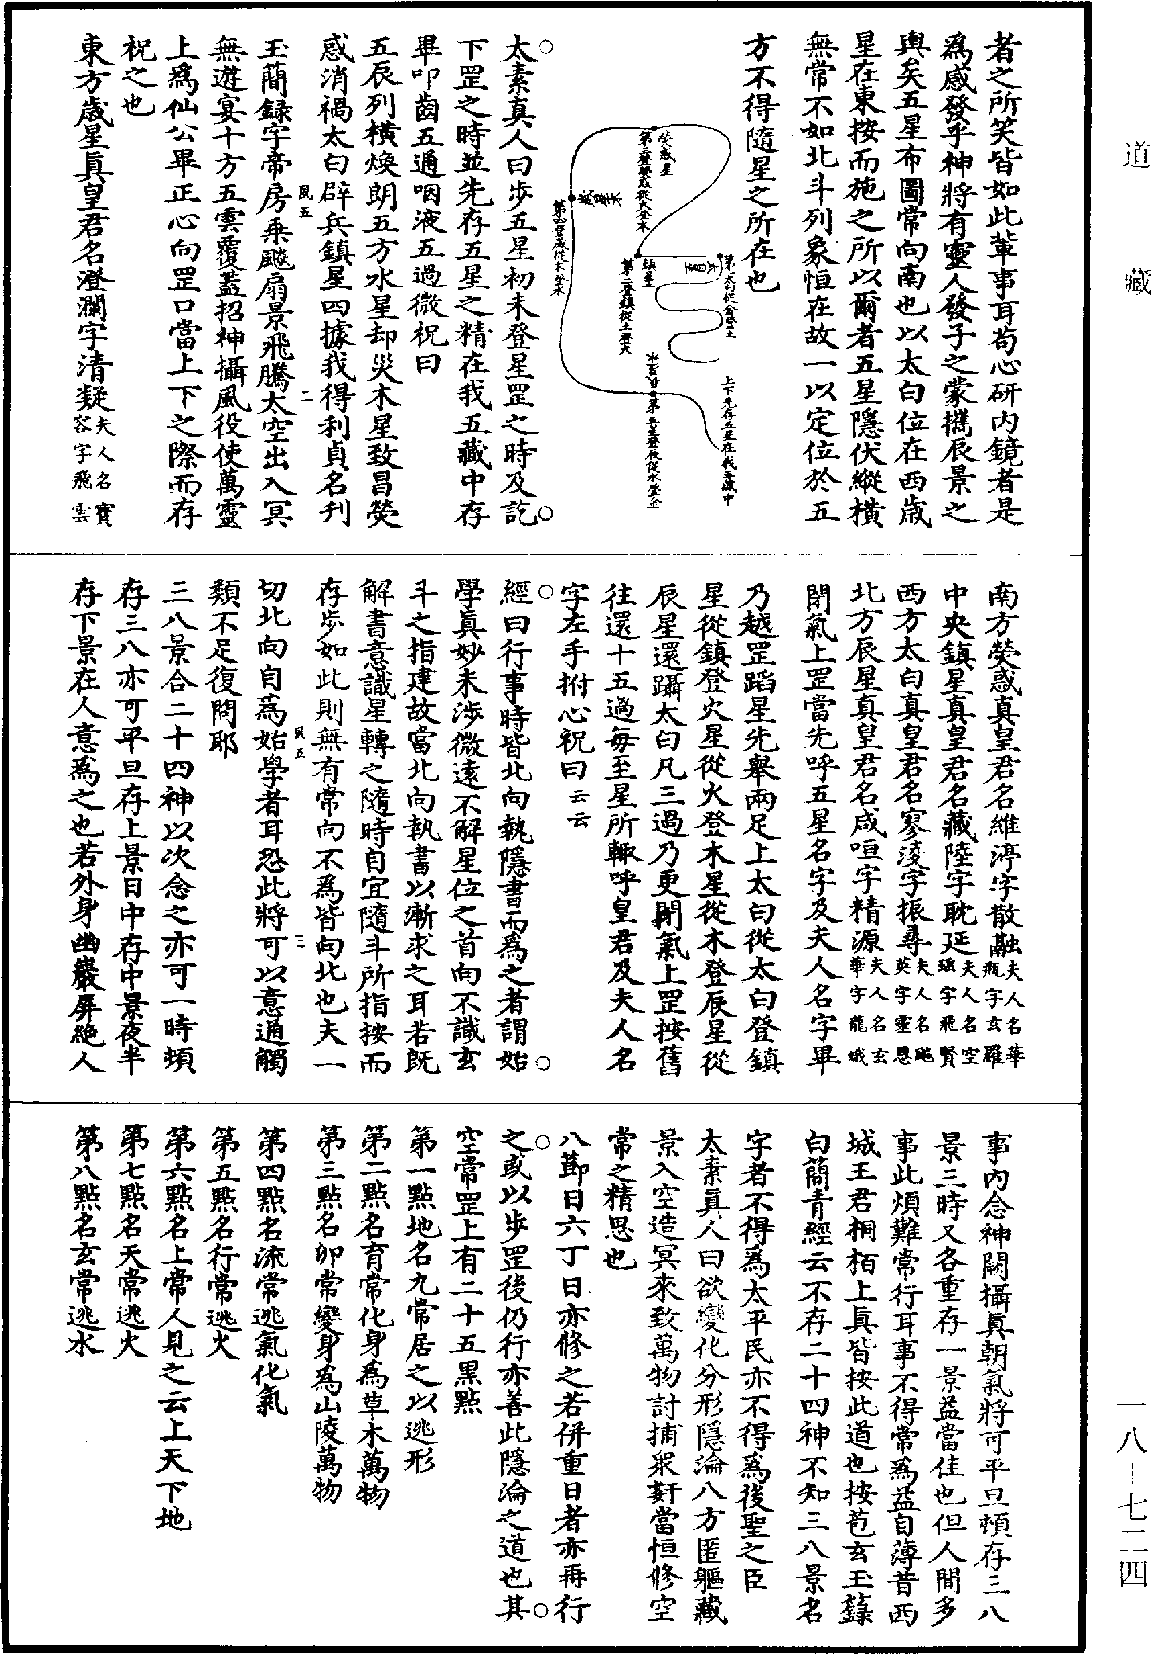 道藏
者之所笑皆如此輩事耳苟心研内鏡者是
為感發乎神將有靈人發子之蒙攜辰景之
輿矣五星布圖常向南也以太白位在西歲
星在東按而施之所以爾者五星隱伏縱橫
無常不如北斗列象恒在故一以定位於五
方不得隨星之所在也
熒惑星
鎮星
上下先存五星在我五藏中
太素真人曰步五星初未登星罡之時及訖
下罡之時並先存五星之精在我五藏中存
畢叩齒五通咽液五過微祝曰
五辰列橫煥朗五方水星却災木星致昌熒
惑消禍太白辟兵鎮星四據我得利貞名刋
玉簡録字帝房乗飈扇景飛騰太空出入冥
無遊宴十方五雲覆蓋招神攝風役使萬靈
上為仙公畢正心向罡口當上下之際而存
祝之也
東方歲星真皇君名澄瀾字清凝夫人名寶容字飛雲
風五
二
南方熒惑真皇君名維渟字散融夫人名華瓶字玄羅
中央鎮星真皇君名藏陸字耽延夫人名空瑶字飛賢
西方太白真皇君名寥淩字振尋夫人名飈英字靈恩
北方辰星真皇君名咸喧字精源夫人名玄華字龍娥
閉氣上罡當先呼五星名字及夫人名字畢
乃越罡蹈星先舉兩足上太白從太白登鎮
星從鎮登火星從火登木星從木登辰星從
辰星還躡太白凡三過乃更閉氣上罡按舊
往還十五過每至星所輒呼皇君及夫人名
字左手拊心祝曰云云
經曰行事時皆北向執隱書而為之者謂始
學真妙未涉微遠不解星位之首向不識玄
斗之指建故當北向執書以漸求之耳若既
解書意識星轉之隨時自宜隨斗所指按而
存步如此則無有常向不為皆向北也夫一
切北向自為始學者耳恐此將可以意通觸
類不足復問耶
風五
三
三八景合二十四神以次念之亦可一時頓
存三八亦可平旦存上景日中存中景夜半
存下景在人意為之也若外身幽巖屏絶人
事内念神闕攝真朝氣將可平旦頓存三八
景三時又各重存一景益當佳也但人間多
事此煩難常行耳事不得常為益自薄昔西
城王君桐栢上真皆按此道也按苞玄玉籙
白簡青經云不存二十四神不知三八景名
字者不得為太平民亦不得為後聖之臣
太素真人曰欲變化分形隱淪八方匿軀藏
景入空造冥來致萬物討捕衆姧當恒修空
常之精思也
八節日六丁日亦修之若併重日者亦再行
之或以步罡後仍行亦善此隱淪之道也其
空常罡上有二十五黑點
第一點地名九常居之以逃形
第二點名育常化身為草木萬物
第三點名卯常變身為山陵萬物
第四點名流常逃氣化氣
第五點名行常逃火
第六點名上常人見之云上天下地
第七點名天常逃火
第八點名玄常逃水
一八—七二四